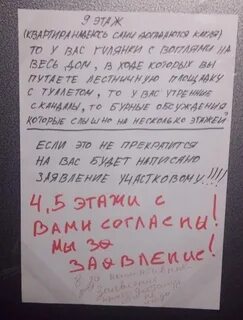 9 ЭТАЖ
(КВАРТИРА НАДЕЮСЬ САМИ ДОГАДАЮТСЯ КАКАЯ)
ТО У ВАС ГУЛЯНКИ С ВОПЛЯМИ НА
ВЕСЬ ДОМ, В ХОДЕ КОТОРЫХ ВЫ
ПУТАЕТЕ ЛЕСТНИЧНУЮ ПЛОЩАДКУ
С ТУАЛЕТОМ, ТО У ВАС УТРЕННИЕ
СКАНДАЛЫ, ТО БУРНЫЕ ОБСУЖДЕНИЯ,
КОТОРЫЕ СЛЫШНО НА НЕСКОЛЬКО ЭТАЖЕЙ.
ЕСЛИ ЭТО НЕ ПРЕКРАТИТСЯ
НА ВАС БУДЕТ НАПИСАНО
ЗАЯВЛЕНИЕ УЧАСТКОВОМУ!!!!!
4,5 ЭТАЖИ С
ВАМИ СОГЛАСНЫ!
МЫ ЗА
ЗАЯВЛЕНИЕ!